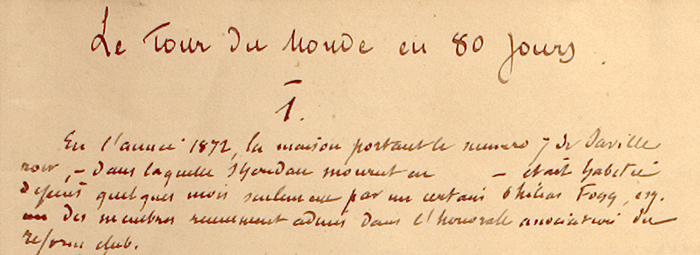 Le Tour du Monde en 80 jours
I.
En l'année 1872, la maison portant le numero 7 de Saville
row, – dans laquelle Sheridan mourut en – était habitée
depuis quelques mois seulement par un certain Phileas Fogg, esq.
un des membres recemment admis dans l'honorable association du
reform club.